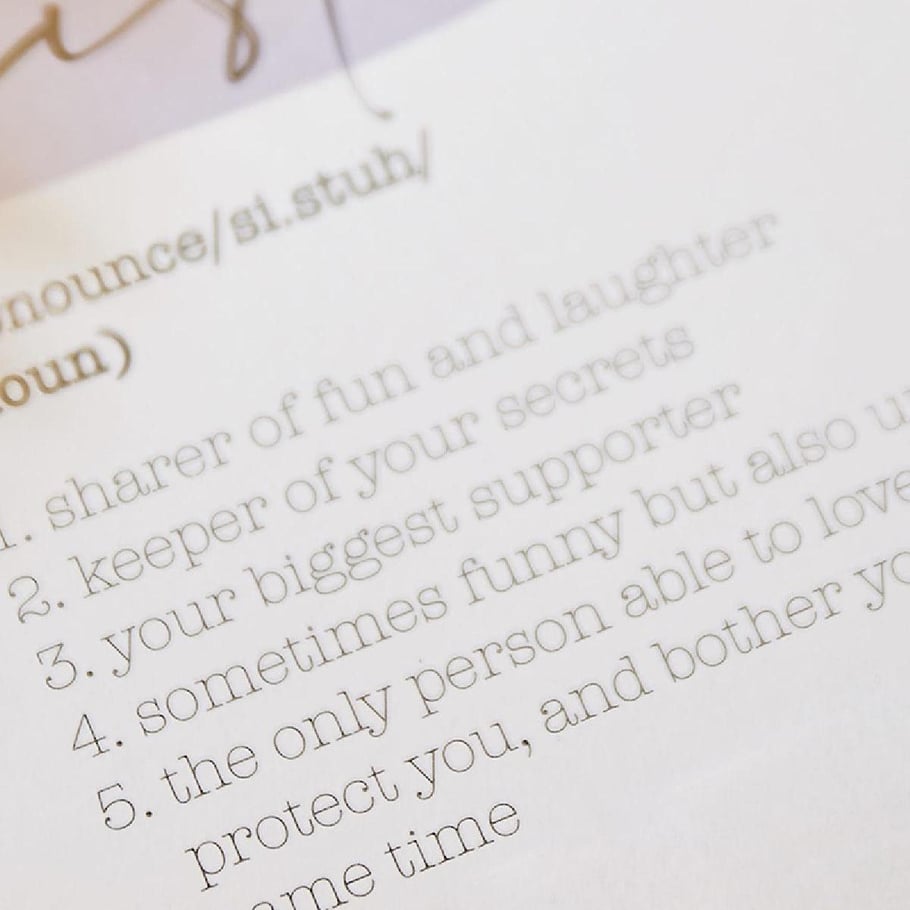 nounce/si.stuh/
oun)
1. sharer of fun and laughter
2. keeper of your secrets
3. your biggest supporter
4. sometimes funny but also u
5. the only person able to love
protect you, and bother yo
ame time